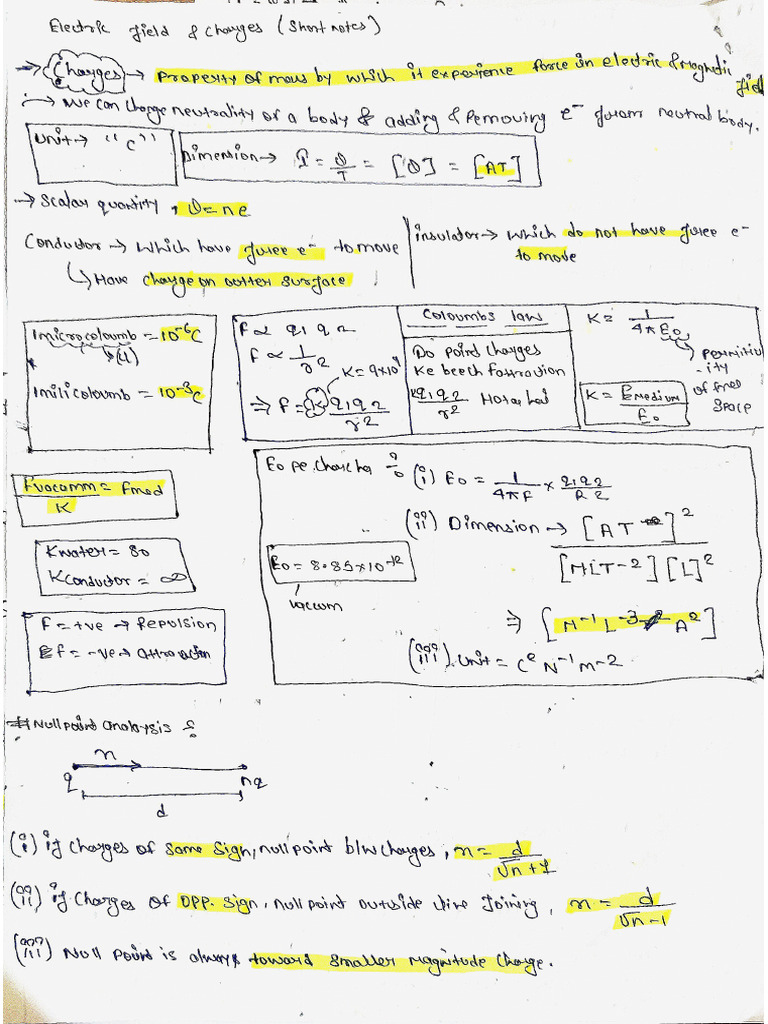 Electric field & Charges (Short notes)
Charges → Property of mass by which it experience force in electric & Magnetic field
→ We can charge neutrality of a body & adding & Removing e⁻ from neutral body.
Unit → "C"
Dimention → I = Q/T = [Q] = [AT]
→ Scalar quantity, Q = ne
Conductor → Which have free e⁻ to move
↳ Have charge on outter surface
insulator → Which do not have free e⁻
to move
1microcoloumb = 10⁻⁶C
(μ)
1milicoloumb = 10⁻³C
F ∝ q1 q2
F ∝ 1/r2
K = 9×10⁹
⇒ F = K q1q2/r2
Coloumbs law
Do point charges
Ke beech
q1q2/r2 Hota hai
K = 1/4πEo
Permitiv
-ity
of free
Space
K = Emedium/Eo
Fvacomm/K = Fmed
Kwater = 80
Kconductor = ∞
F = +ve → Repulsion
F = -ve → attraction
Eo pe charcha :
(i) Eo = 1/4πF × q1q2/R2
(ii) Dimension → [AT]²/[MLT-2][L]²
Eo = 8.85×10⁻¹²
vaccum
⇒ [M⁻¹L⁻³ A²]
(iii) Unit = C² N⁻¹ m-2
# Null point analysis :
x
q nq
d
(i) if charges of same sign, null point b/w charges, x = d/√n+1
(ii) if charges of opp. sign, null point outside line joining, x = d/√n-1
(iii) Null Point is always toward smaller magnitude charge.